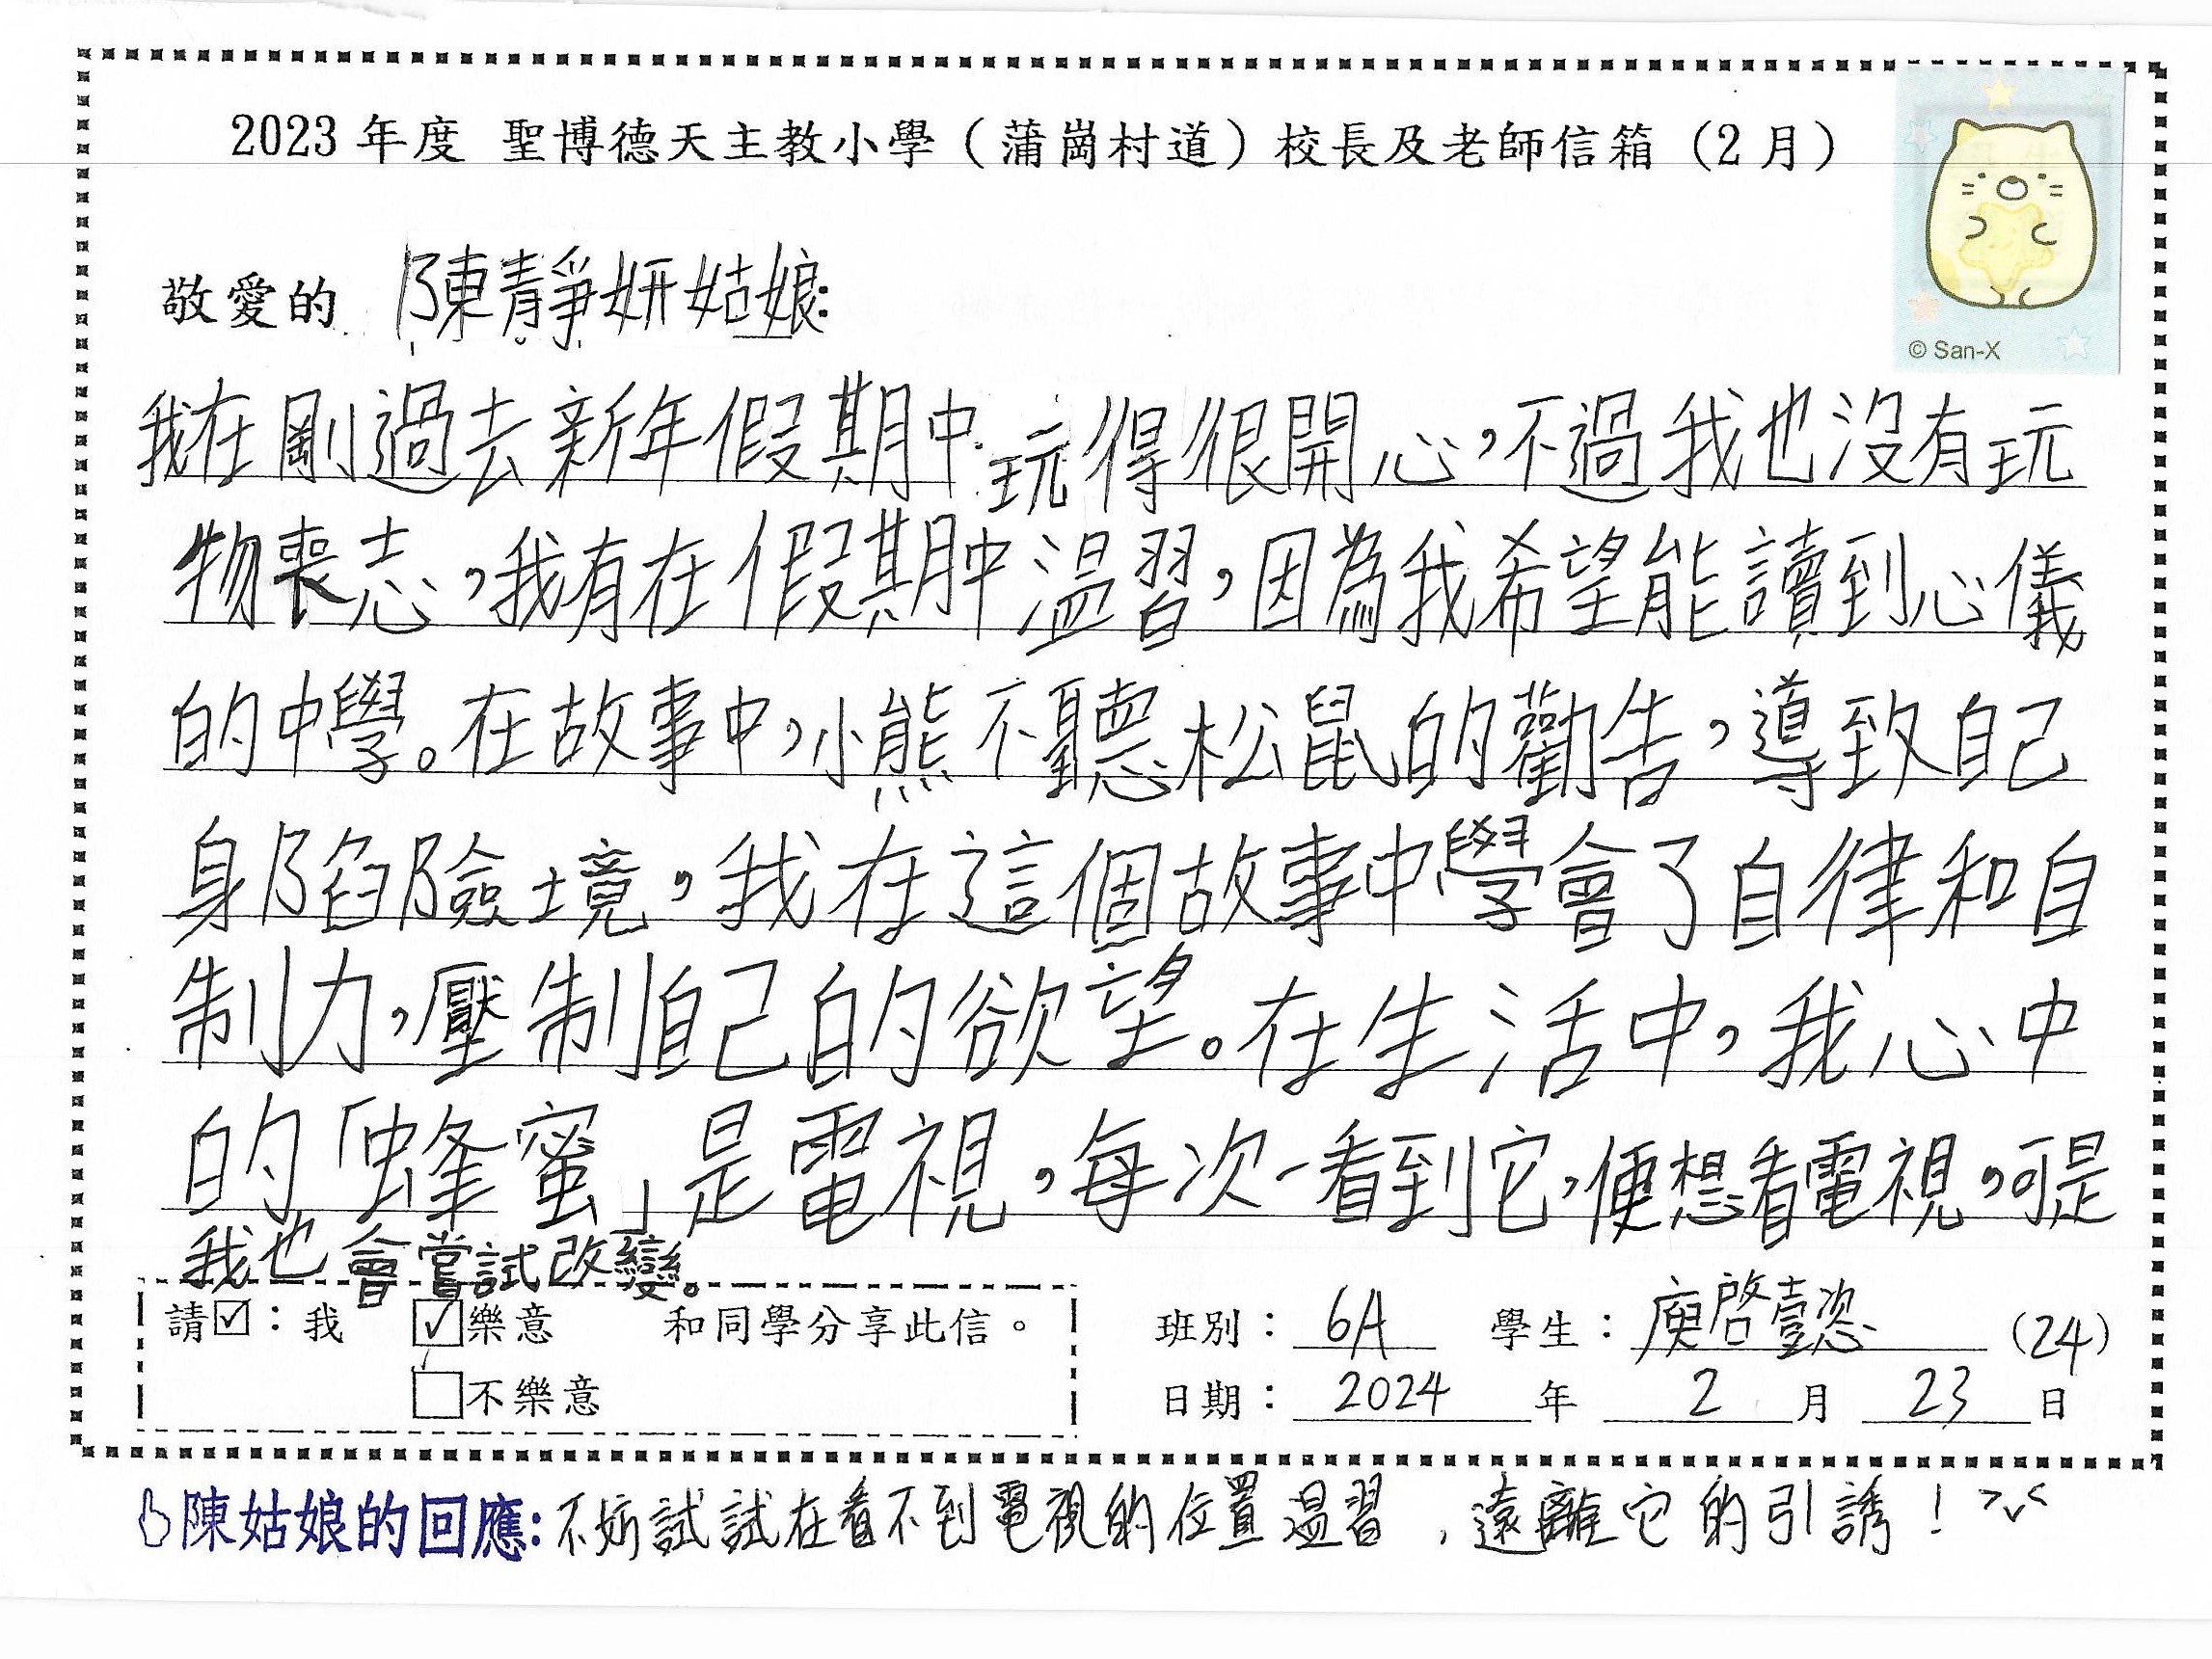 2023 年度 聖博德天主教小學（蒲崗村道）校長及老師信箱（2 月）
© San-X
敬愛的 陳靜妍姑娘:
我在剛過去新年假期中玩得很開心，不過我也沒有玩
物喪志，我有在假期中溫習，因為我希望能讀到心儀
的中學。在故事中，小熊不聽松鼠的勸告，導致自己
身陷險境，我在這個故事中學會了自律和自
制力，壓制自己的欲望。在生活中，我心中
的「蜂蜜」是電視，每次一看到它，便想看電視，可是
我也會嘗試改變。
請☑：我 ☑樂意 和同學分享此信。
□不樂意
班別： 6A 學生： 庾啓懿 (24)
日期： 2024 年 2 月 23 日
陳姑娘的回應: 不妨試試在看不到電視的位置溫習，遠離它的引誘！>v<